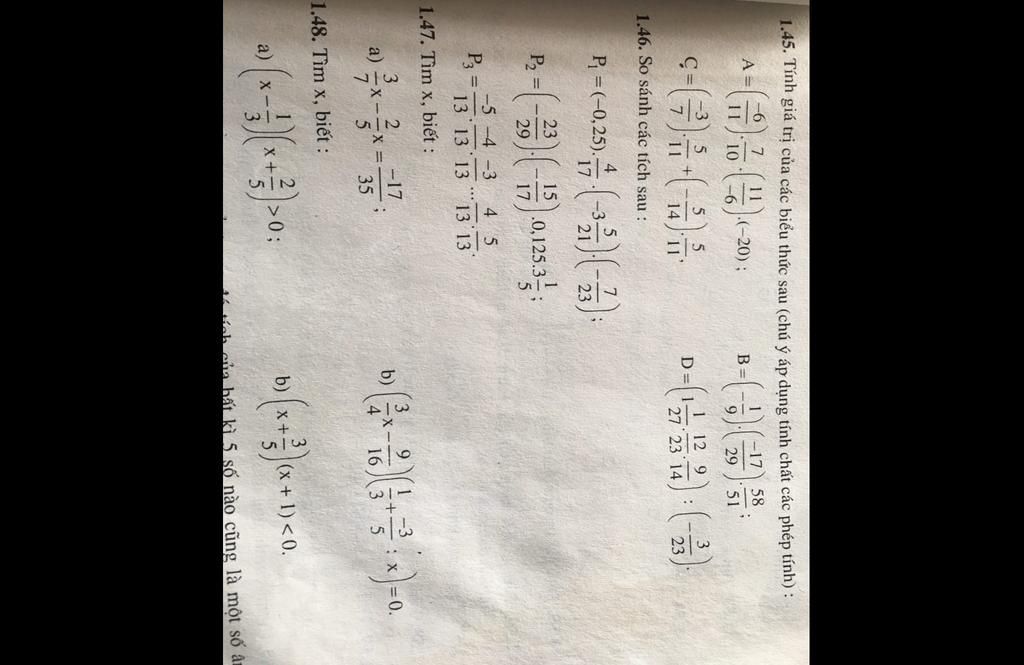 1.45. Tính giá trị của các biểu thức sau (chú ý áp dụng tính chất các phép tính) :
A = (-6/11) . 7/10 . (11/-6) . (-20) ; B = (-1/9) . (-17/29) . 58/51 ;
C = (-3/7) . 5/11 + (-5/14) . 5/11 , D = (1 1/27 . 12/23 . 9/14) : (-3/23) .
1.46. So sánh các tích sau :
P₁ = (-0,25) . 4/17 . (-3 5/21) . (-7/23) ;
P₂ = (-23/29) . (-15/17) . 0,125 . 3 1/5 ;
P₃ = -5/13 . -4/13 . -3/13 ... 4/13 . 5/13 .
1.47. Tìm x, biết :
a) 3/7 x - 2/5 x = -17/35 ; b) (3/4 x - 9/16)(1/3 + -3/5 : x) = 0.
1.48. Tìm x, biết :
a) (x - 1/3)(x + 2/5) > 0 ; b) (x + 3/5)(x + 1) < 0.
tích của bất kì 5 số nào cũng là một số